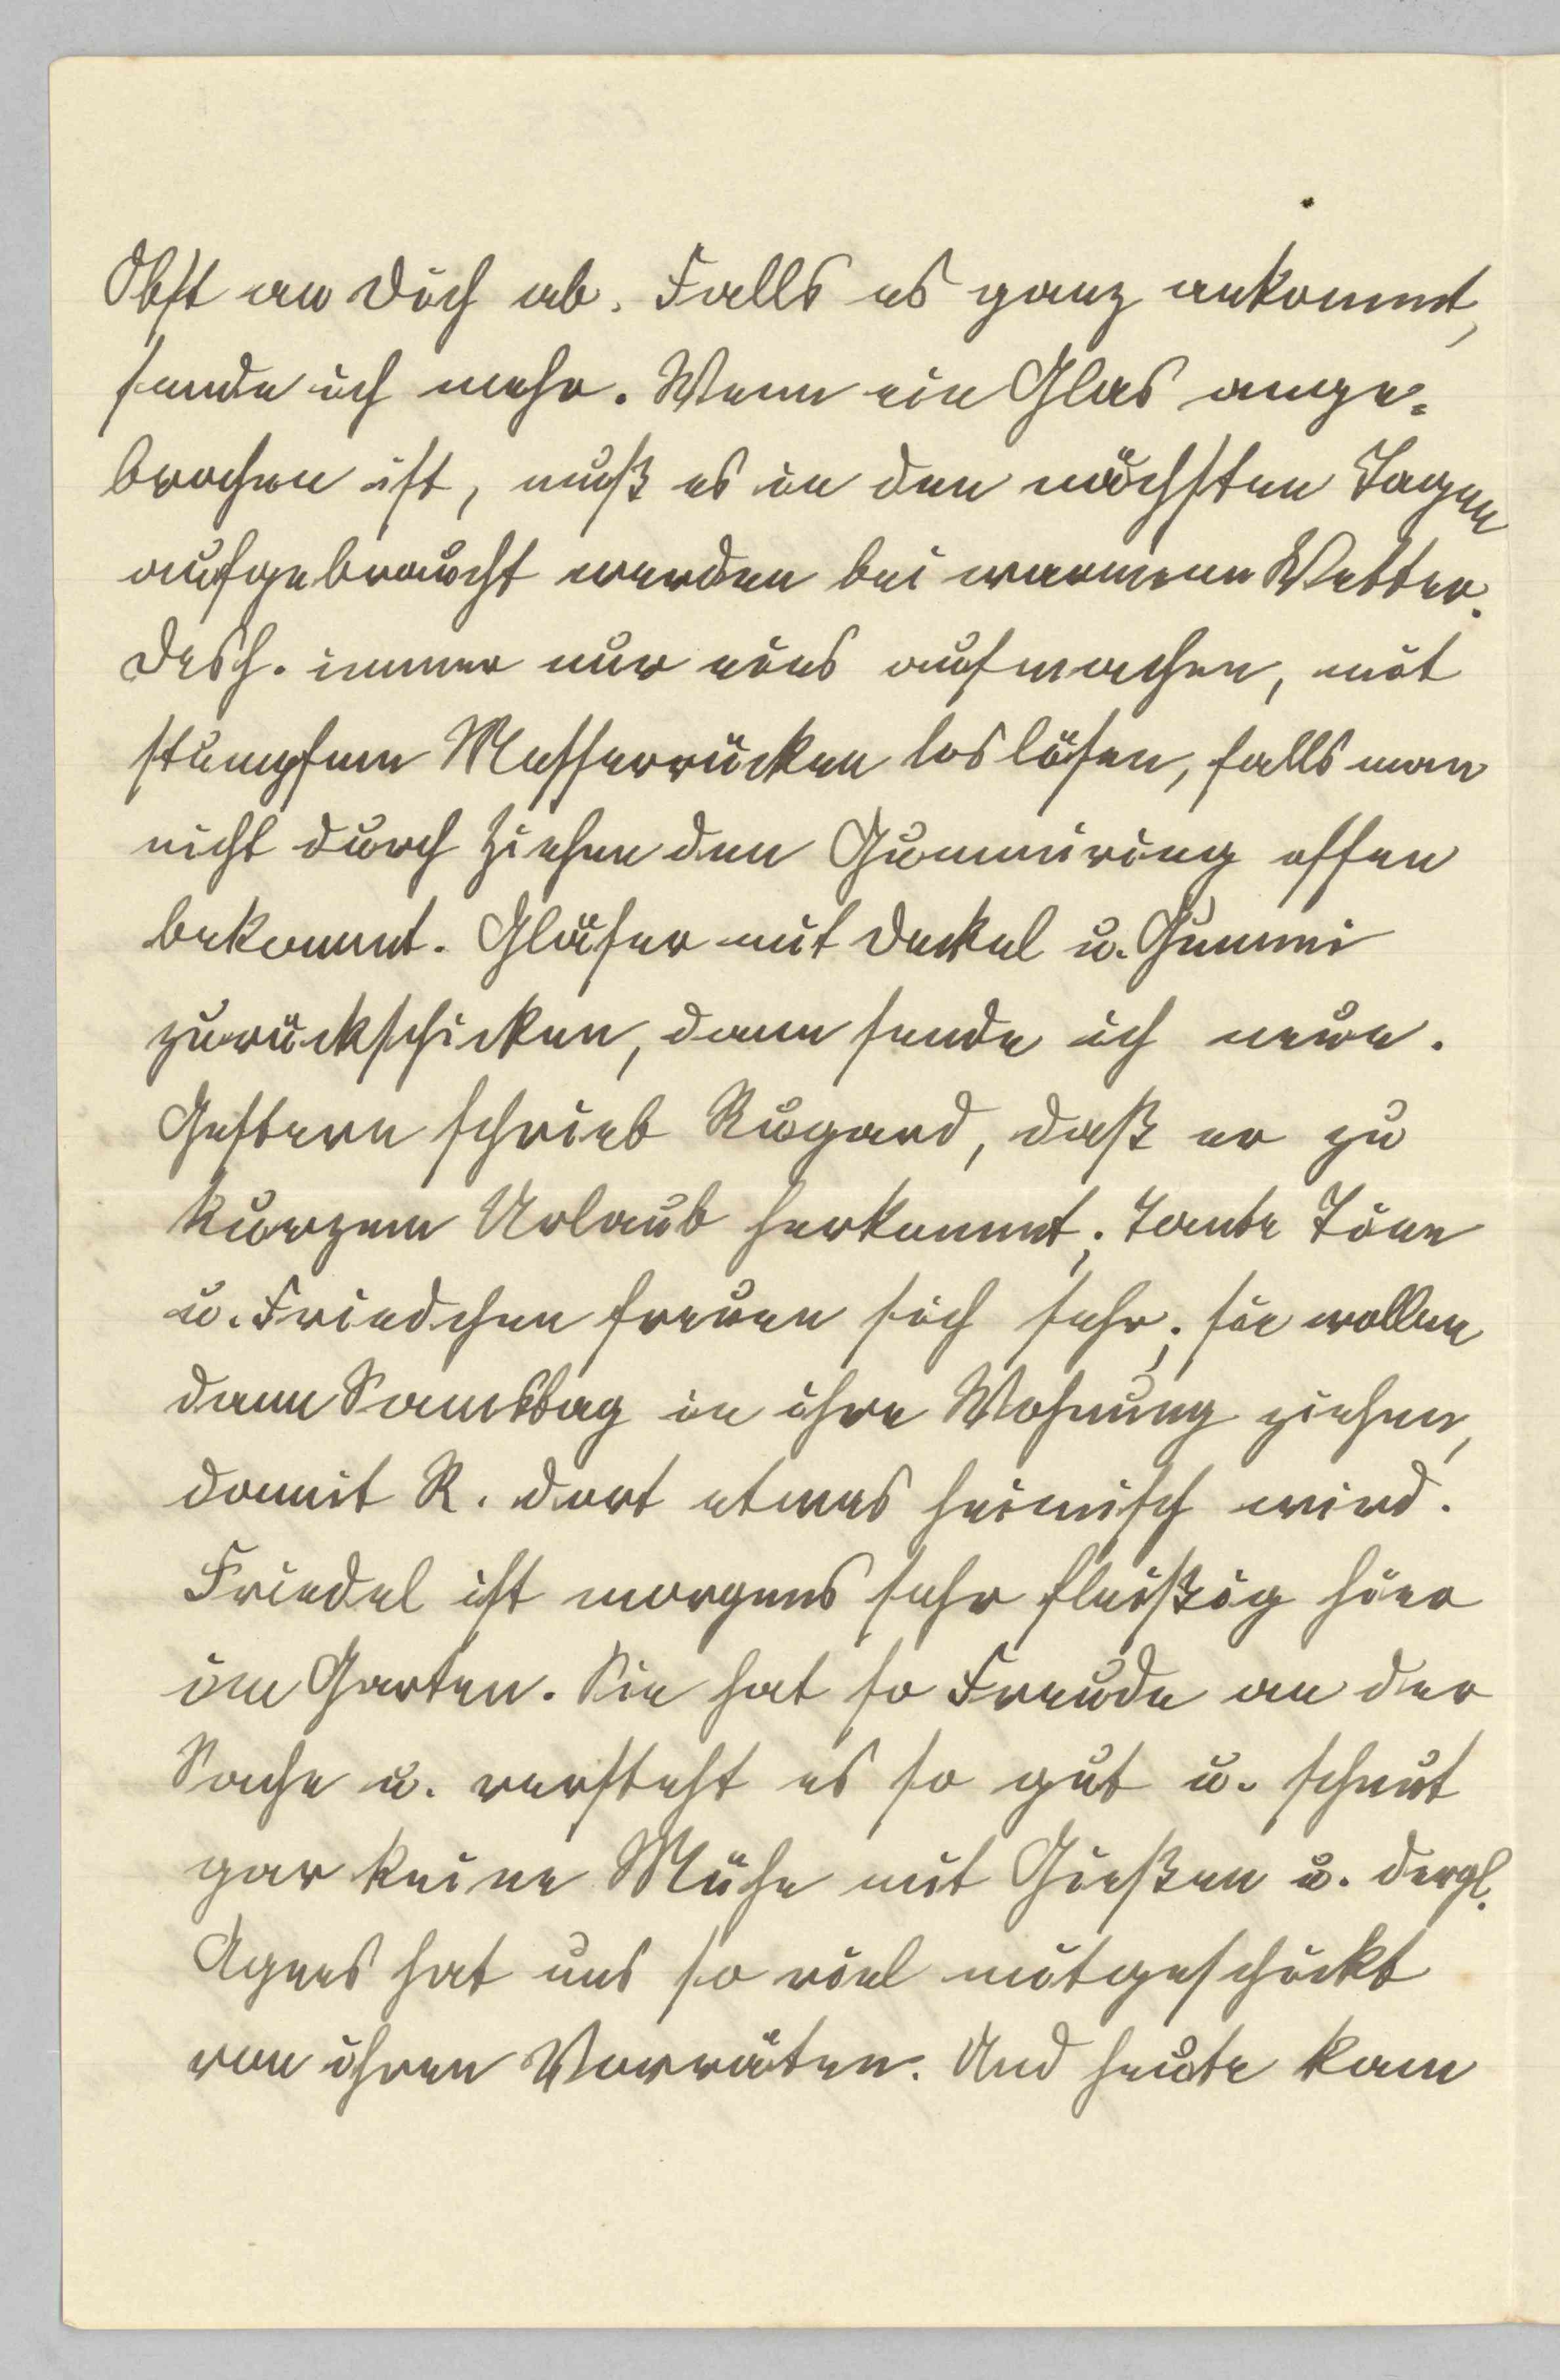 Obst an Dich ab. Falls es ganz ankommt,
sende ich mehr. Wenn ein Glas ange=
brochen ist, muß es in den nächsten Tagen
aufgebraucht werden bei warmem Wetter.
Desh. immer nur eins aufmachen, mit
stumpfem Messerrücken loslösen, falls man
nicht durch Ziehen den Gummiring offen
bekommt. Gläser mit Deckel u. Gummi
zurückschicken, dann sende ich neue.
Gestern schrieb Rugard, daß er zu
kurzem Urlaub herkommt; Tante Tine
u. Friedchen freuen sich sehr; sie wollen
dann Samstag in ihre Wohnung ziehen,
damit R. dort etwas heimisch wird.
Friedel ist morgens sehr fleißig hier
im Garten. Sie hat so Freude an der
Sache u. versteht es so gut u. scheut
gar keine Mühe mit Gießen u. dergl.
Agnes hat uns so viel mitgeschickt
von ihren Vorräten. Und heute kam